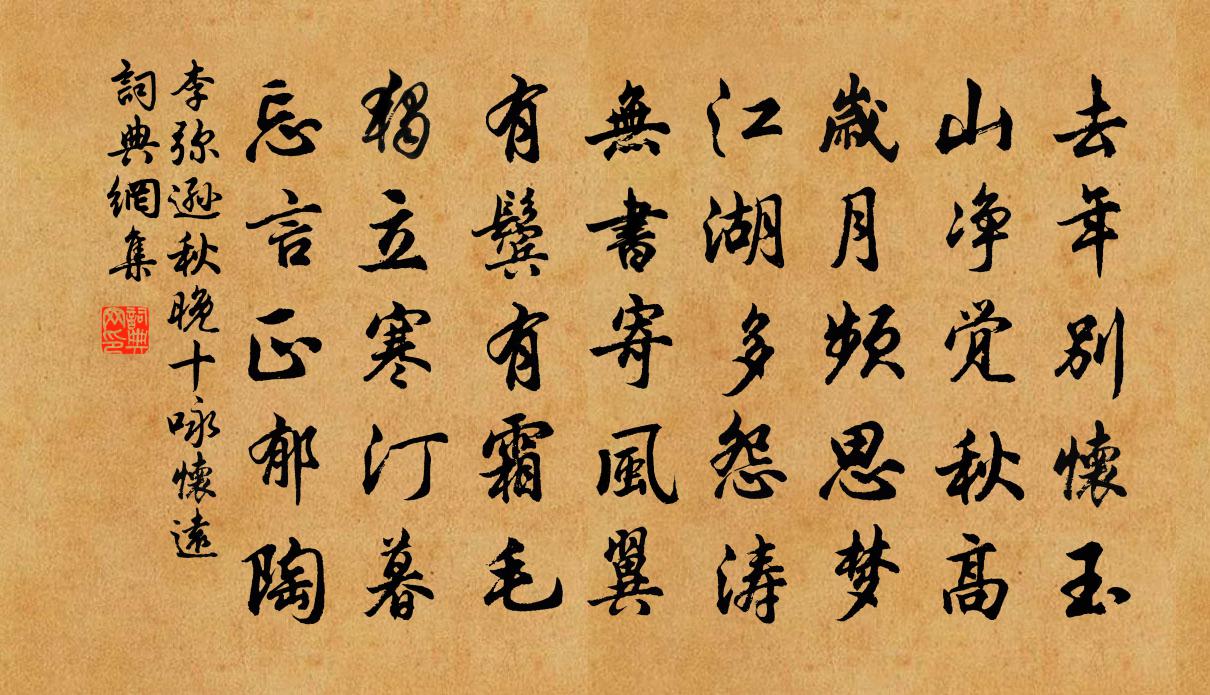 去年別懷玉
山净覚秋高
歲月頻思梦
江湖多怨涛
無書寄風翼
有鬢有霜毛
獨立寒汀暮
忘言正郁陶
李弥遜秋晚十咏懷遠
詞典網集
詞典網印